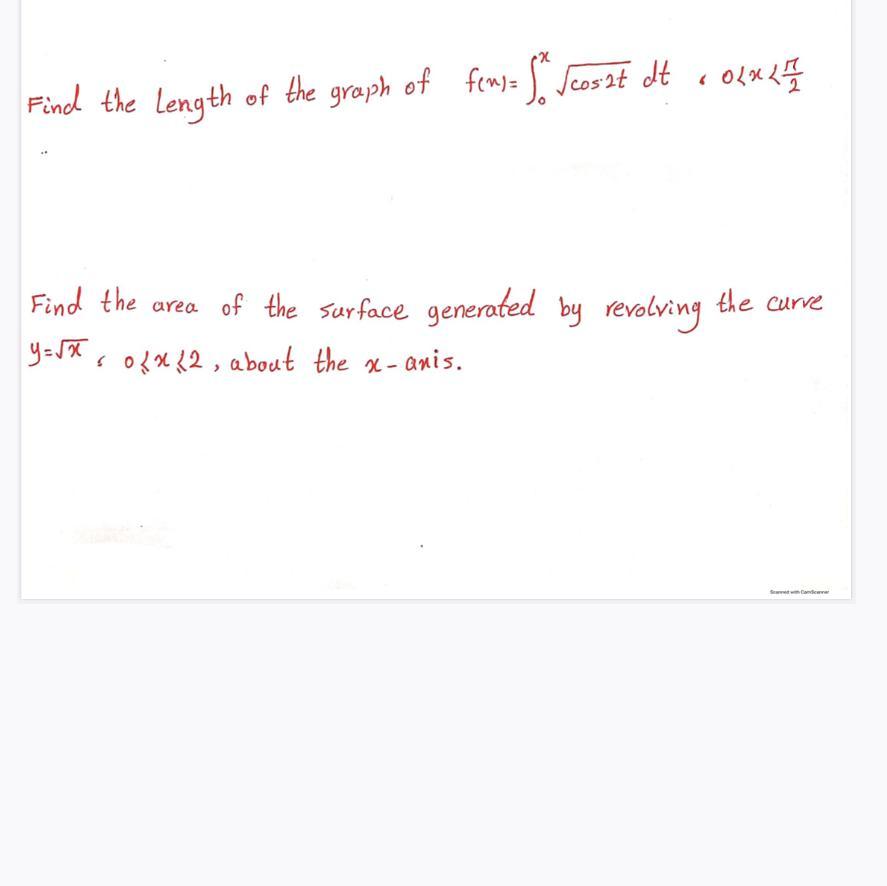 Find the Length of the graph of f(x)= ∫₀ˣ √cos2t dt , 0<x<π/2
Find the area of the surface generated by revolving the curve
y=√x , 0≤x≤2, about the x-axis.
Scanned with CamScanner